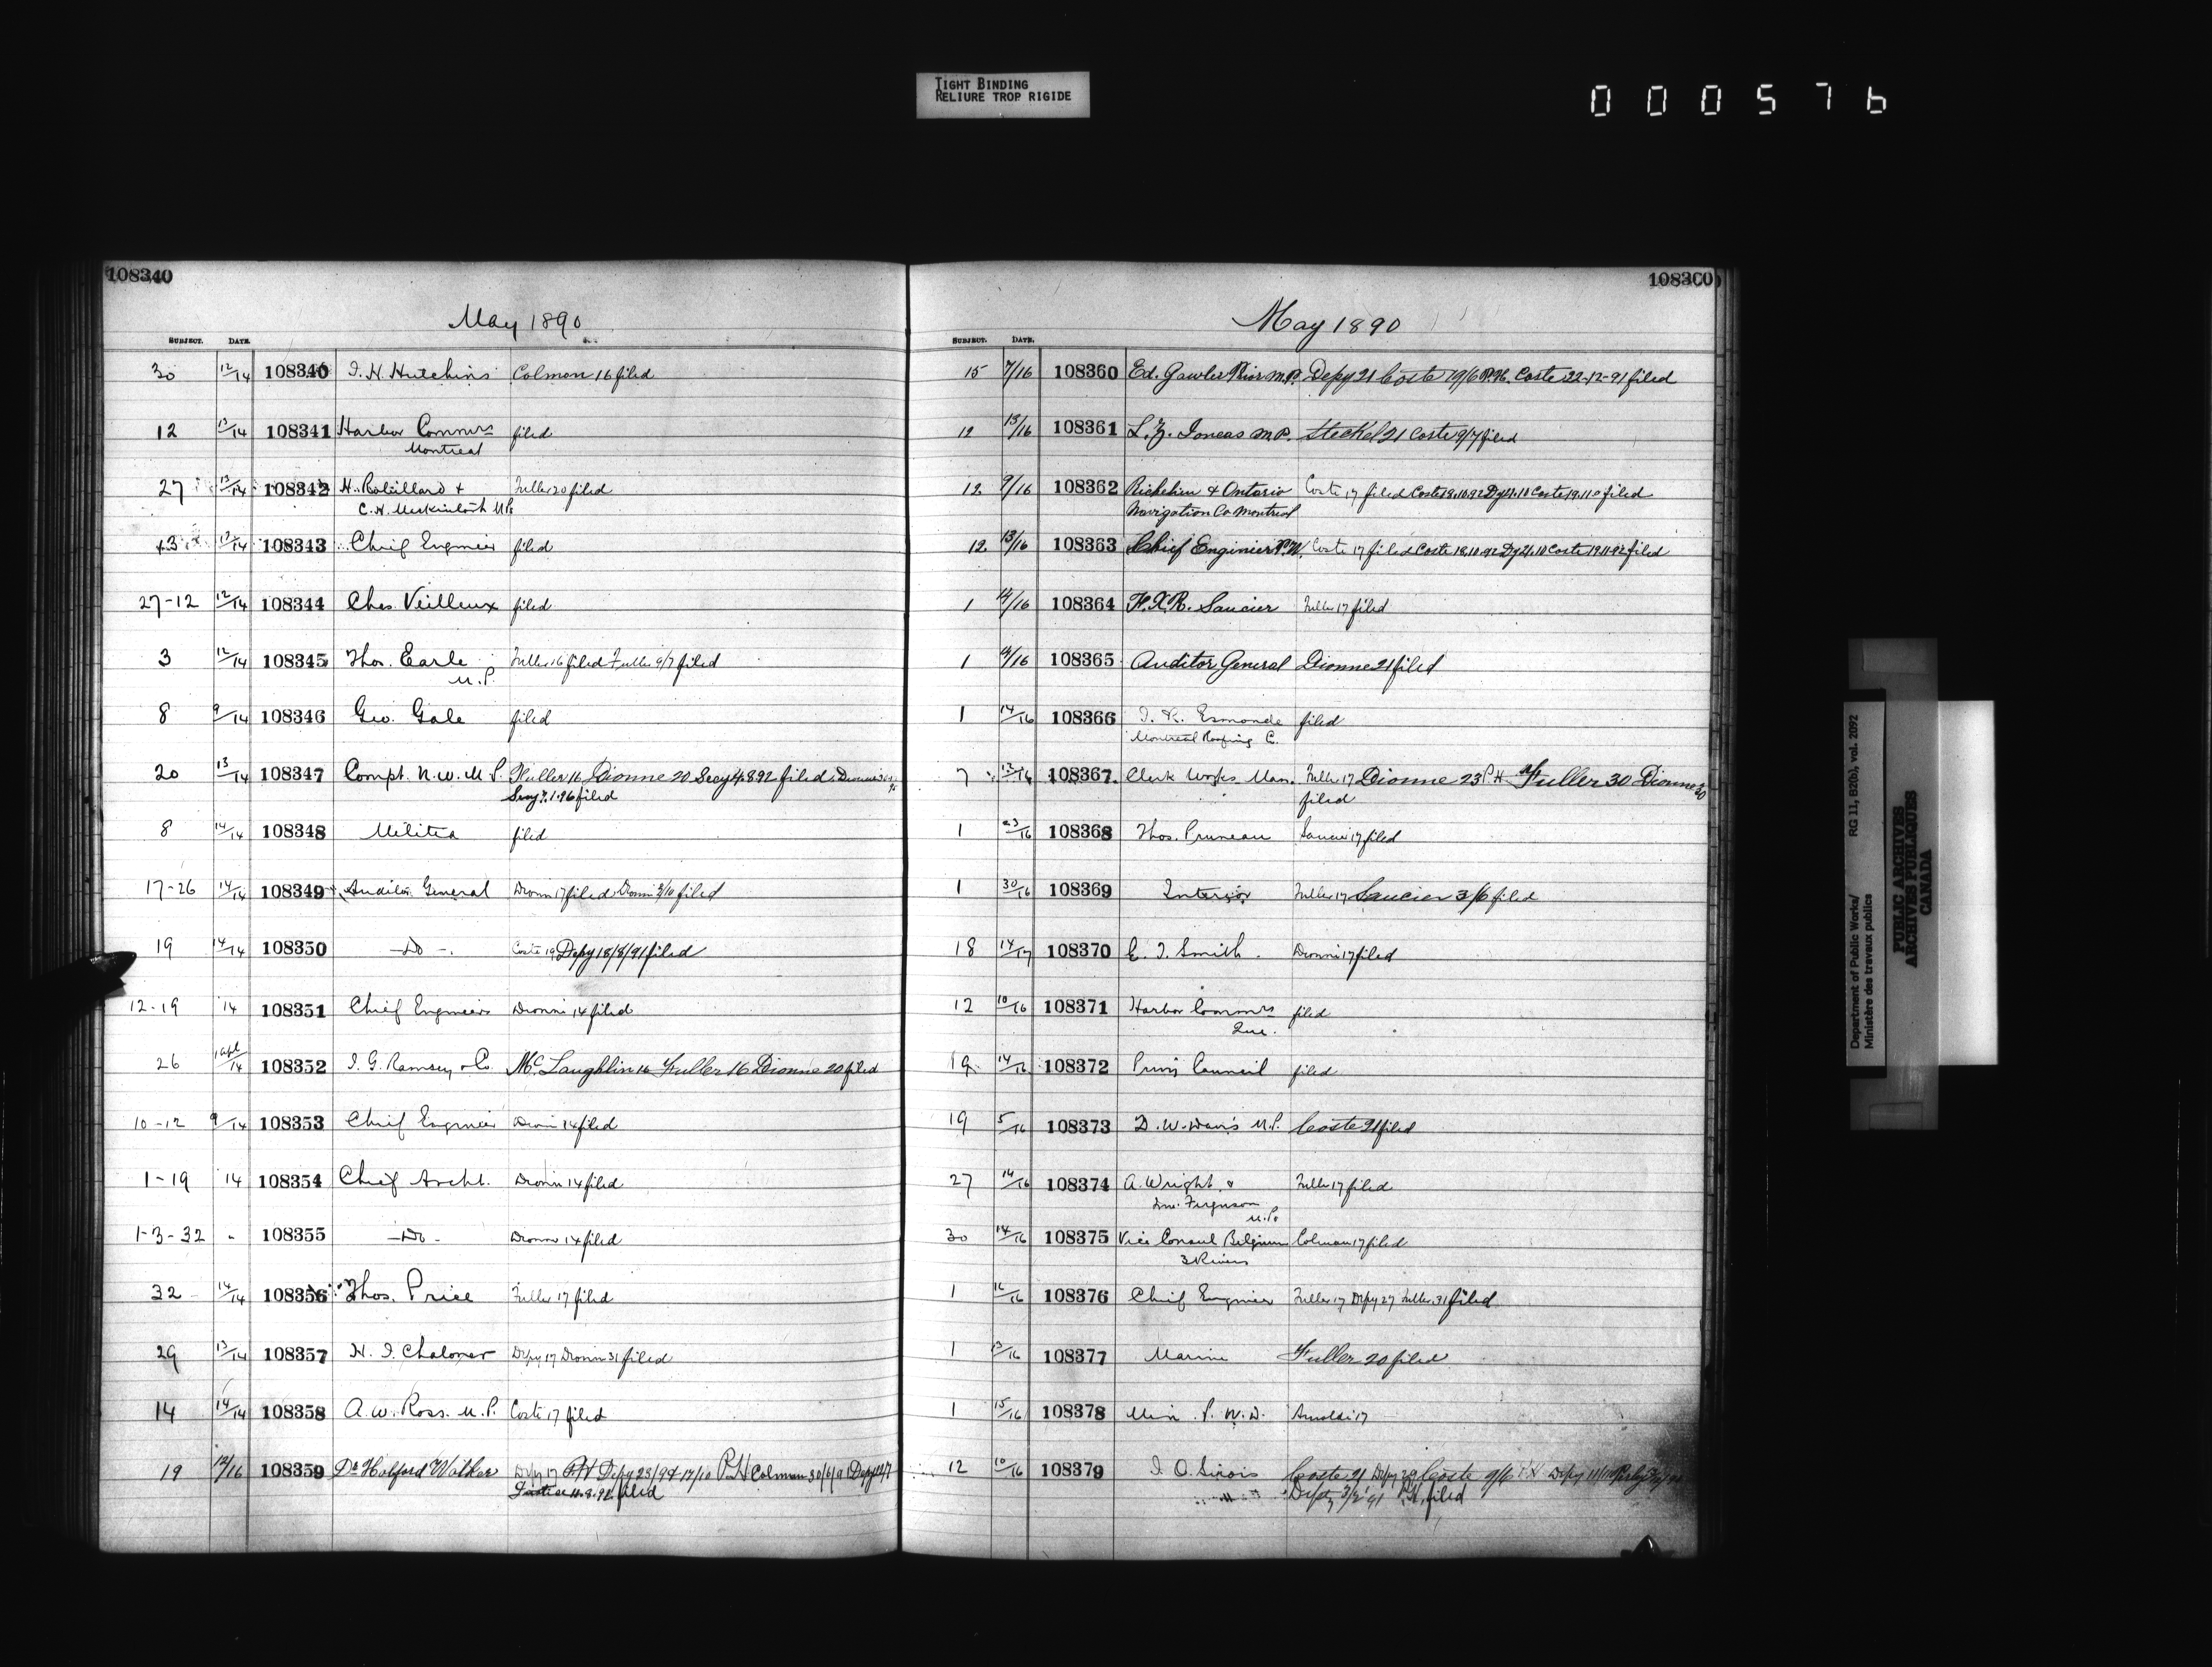 TIGHT BINDING
RELIURE TROP RIGIDE
000576
108340
May 1890
SUBJECT. DATE.
30 12/14 108340 J. H. Hutchins Colmon 16 filed
12 13/14 108341 Harbor Commrs filed
Montreal
27 13/14 108342 H. Robillard + Fuller 20 filed
C. H. Mackintosh M.Ps
13/14 108343 Chief Engineer filed
27-12 12/14 108344 Chas. Veilleux filed
3 12/14 108345 Thos. Earle Fuller 16 filed Fuller 9/7 filed
M.P.
8 9/14 108346 Geo. Gale filed
20 13/14 108347 Compt. N.W.M.P. Fuller 16 Dionne 20 Secy 4.8.92 filed
Secy 7.1.96 filed
8 14/14 108348 Militia filed
17-26 14/14 108349 Auditor General Dionne 17 filed Dionne 3/10 filed
19 14/14 108350 -Do-. Coste 19 Depy 18/8/91 filed
12-19 14 108351 Chief Engineer Dionne 14 filed
26 1 Apl/14 108352 J. G. Ramsey & Co McLaughlin 16 Fuller 16 Dionne 20 filed
10-12 9/14 108353 Chief Engineer Dionne 14 filed
1-19 14 108354 Chief Archt. Dionne 14 filed
1-3-32 " 108355 -Do- Dionne 14 filed
32 14/14 108356 Thos. Price Fuller 17 filed
29 13/14 108357 H. J. Chaloner Depy 17 Dionne 31 filed
14 14/14 108358 A. W. Ross. M.P. Coste 17 filed
19 12/16 108359 Dr Holford Walker Depy 17 P.H Depy 23/9 17/10 P.H Colman 30/6/91 Depy
11.8.92 filed
108360
May 1890
SUBJECT. DATE.
15 7/16 108360 Ed. Gawler Prior M.P. Depy 21 Coste 19/6 P.H. Coste 22-12-91 filed
12 13/16 108361 L. Z. Joncas M.P. Steckel 21 Coste 9/7 filed
12 9/16 108362 Richelieu & Ontario Coste 17 filed Coste 18.10.92 Dy 21.10 Coste 19.11 filed
Navigation Co Montreal
12 13/16 108363 Chief Engineer P.W. Coste 17 filed Coste 18.10.92 Dy 21.10 Coste 19.11.92 filed
1 14/16 108364 F.X.R. Saucier Fuller 17 filed
1 /16 108365 Auditor General Dionne 21 filed
1 14/16 108366 J. R. Esmonde filed
Montreal Roofing C.
7 12/16 108367. Clerk Works Man. Fuller 17 Dionne 23 P.H Fuller 30 Dionne 30
filed
1 23/16 108368 Thos. Pruneau Saucier 17 filed
1 30/16 108369 Interior Fuller 17 Saucier 3/6 filed
18 14/17 108370 E. J. Smith. Dionne 17 filed
12 10/16 108371 Harbor Commrs filed
Que.
19. 14/16 108372 Privy Council filed
19 5/16 108373 D. W. Davis M.P. Coste 21 filed
27 14/16 108374 A. Wright & Fuller 17 filed
Ferguson
M.Ps
30 14/16 108375 Vice Consul Belgium Colman 17 filed
3 Rivers
1 16/16 108376 Chief Engineer Fuller 17 Depy 27 Fuller 31 filed
1 13/16 108377 Marine Fuller 20 filed
1 15/16 108378 Min. P.W.D. Arnoldi 17
12 10/16 108379 J. O. Sirois Coste 21 Depy 29 Coste 9/6 P.H Depy 11/11
Depty 3/2/91 P.H. filed
Department of Public Works/
Ministère des travaux publics
RG 11, B2(b), vol. 2092
PUBLIC ARCHIVES
ARCHIVES PUBLIQUES
CANADA